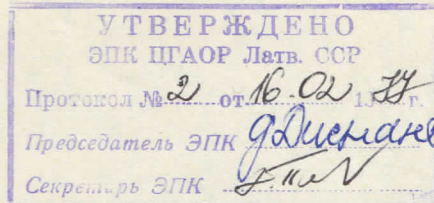 УТВЕРЖДЕНО
ЭПК ЦГАОР Латв. ССР
Протокол № 2 от 16.02 1977 г.
Председатель ЭПК
Секретарь ЭПК